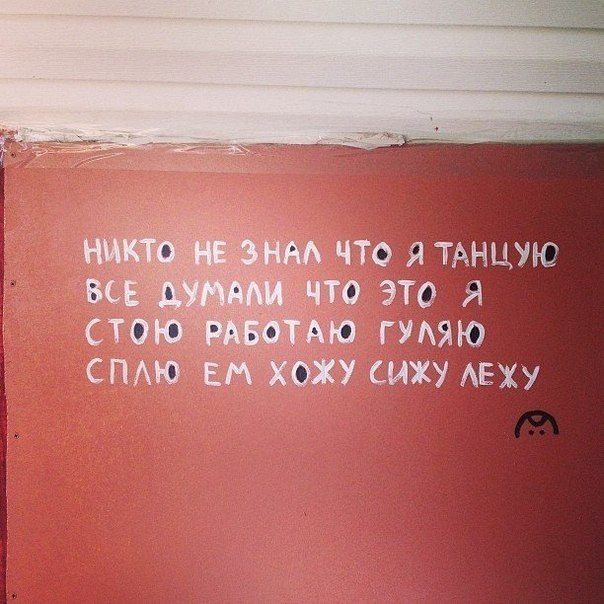 НИКТО НЕ ЗНАЛ ЧТО Я ТАНЦУЮ
ВСЕ ДУМАЛИ ЧТО ЭТО Я
СТОЮ РАБОТАЮ ГУЛЯЮ
СПЛЮ ЕМ ХОЖУ СИЖУ ЛЕЖУ